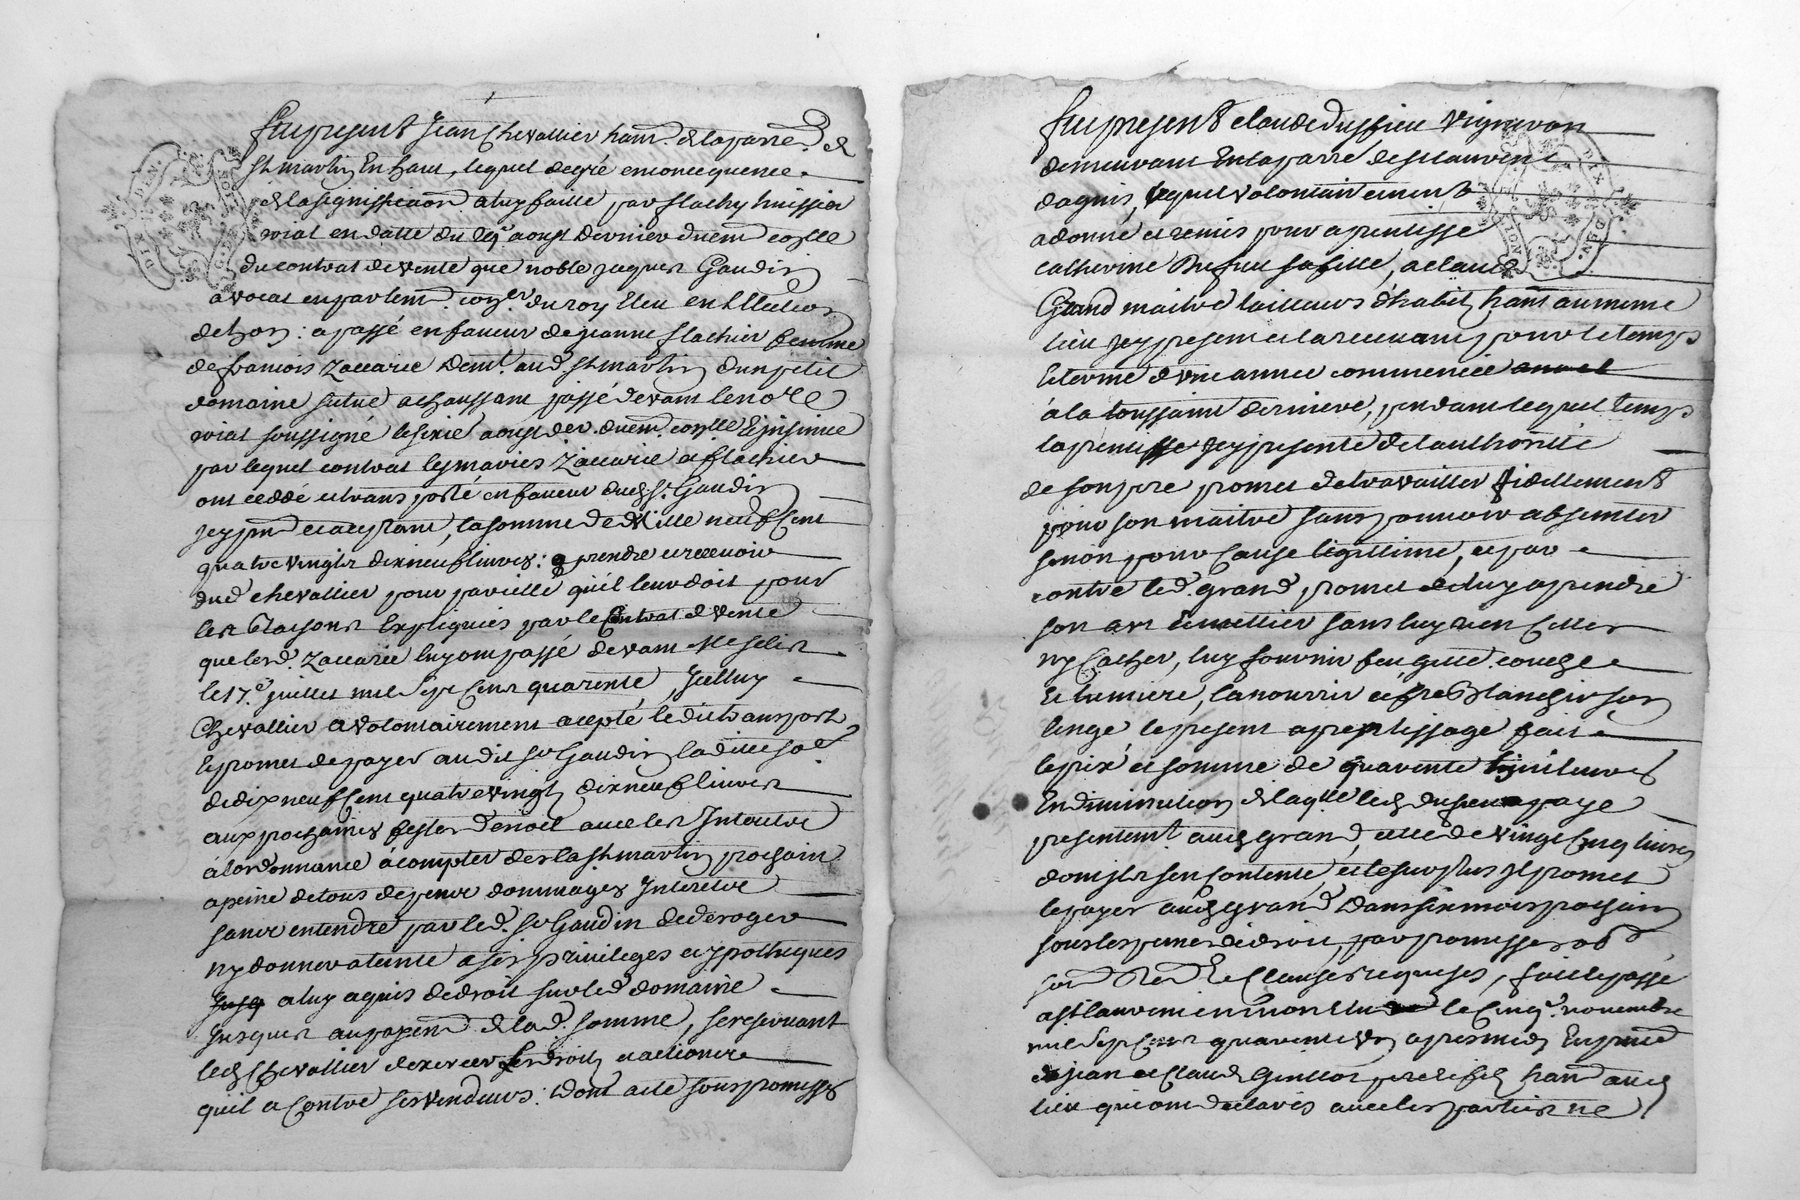 fut present Jean Chevallier hant. de la parre. de
st martin En haut, lequel de gré en consequence
de la signiffication a luy faitte par flachy huissier
roial en datte du aoust dernier duem. coll
du contrat de vente que noble jaques Gaudin
avocat en parlemt. coner. du roy Eleu en L'Election
de Lyon : a passé en faveur de jeanne flachier femme
de francois Zaccarie demt. aud. st martin dun petit
domaine situé a chaussant passé devant le nore
roial soussigné le sixie aoust der. duem. coll Et insinué
par lequel contrat les mariés Zaccarie et flachier
ont ceddé et transporté en faveur dudt sr. Gaudin
icy pnt et aceptant, la somme de Mille neuf Cent
quatre vingts dix neuf livres : a prendre et recevoir
dud chevallier pour pareille qu'il leur doit pour
les Raisons Expliquées par le Contrat de vente
que lesd. Zaccarie luy ont passé devant Me
le 17e. juillet mil Sept Cent quarente, Icelluy
Chevallier a volontairement acepté ledit transport
Et promet de payer audit sr Gaudin laditte soe
de dix neuf Cent quatre vingts dix neuf livres
aux prochaines festes de noel avec les Interets
a l'ordonnance a compter de la st martin prochain
a peine de tous depens dommages Interets
sans entendre par led. sr Gaudin de deroger
ny donner atteinte a ses privileges et ypotheques
a luy aquis de droit sur led domaine
Jusques au payemt de lad. somme, se reservant
ledt Chevallier d'exercer ses droits et actions
qu'il a Contre ses vendeurs : Dont acte sous promesses
fut present claude dusfieu Vigneron
demeurant En la parre de st laurent
dagnis, lequel volontairement
a donné et remis pour aprentisse
catherine Dufieu sa fille, a claude
Grand maitre tailleurs d'habits hant au meme
lieu icy present et la recevant pour le temps
Et terme d'une année commencée
à la toussaint derniere, pendant lequel temps
laprentisse icy presente de lauthorité
de son pere promet de travailler fidellement
pour son maitre sans pouvoir absenter
sinon pour Cause legittime, et par
contre led. grand promet de luy aprendre
son art et mettier sans luy rien Celler
ny Cacher, luy fournir feu gitte. couche
Et lumiere, la nourrir et fre Blanchir son
linge le present aprentissage fait
le prix et somme de quarente livres
En diminution de laqlle ledt dufieu paye
presentemt. audt grand, celle de vingt Cinq livres
dont il se Contente et le surplus Il promet
le payer audt grand dans six mois prochain
sous les peines de droit, par promesses
Clauses requises, fait et passé
a st laurent en mon Etude le Cinqe. novembre
mil Sept Cent quarente apres midy En prnce
de jean et Claude Guillot pere et fils hant audt
lieu qui ont declarés avec les parties ne